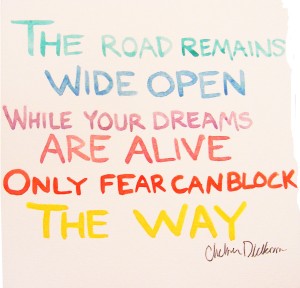 THE ROAD REMAINS
WIDE OPEN
WHILE YOUR DREAMS
ARE ALIVE
ONLY FEAR CAN BLOCK
THE WAY
Chelsea